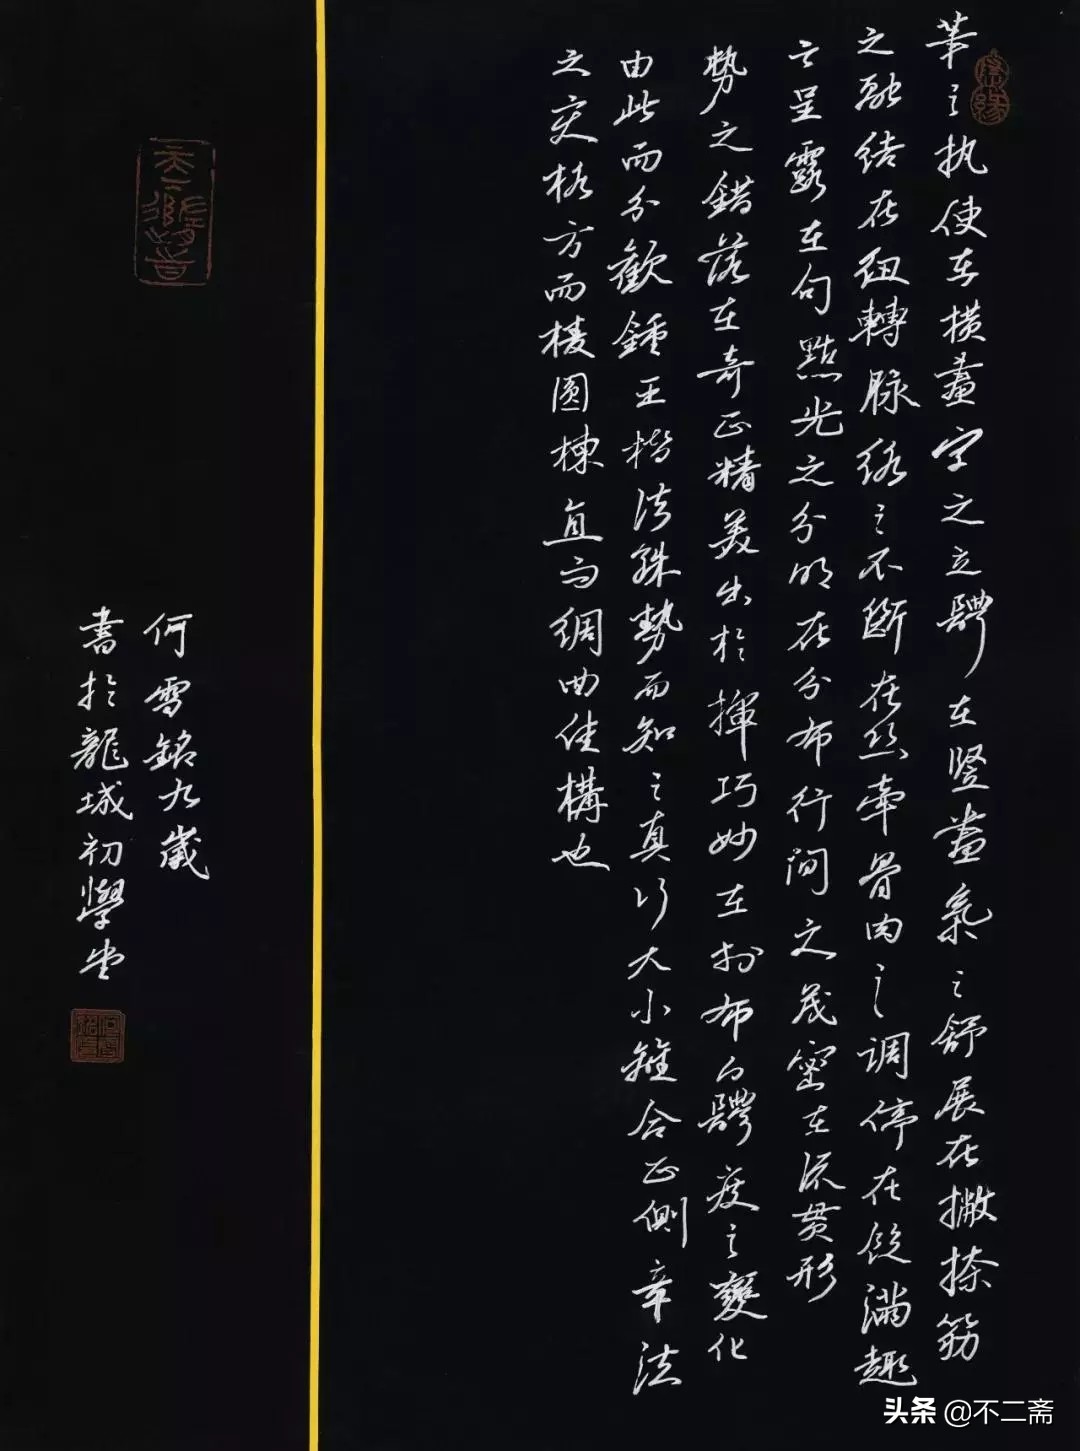 筆之执使在橫畫字之立體在竖畫氣之舒展在撇捺筋
之融結在纽轉脉络之不斷在丝牽骨肉之调停在飽滿趣
之呈露在句點光之分明在分布行间之茂密在流贯形
勢之錯落在奇正精美出於揮巧妙在於布白體度之變化
由此而分歡鍾王楷法殊勢而知之真行大小離合正側章法
之变格方而棱圆棟直而綱曲佳構也
何雪銘九歲
書於龍城初學堂
头条 @不二斋